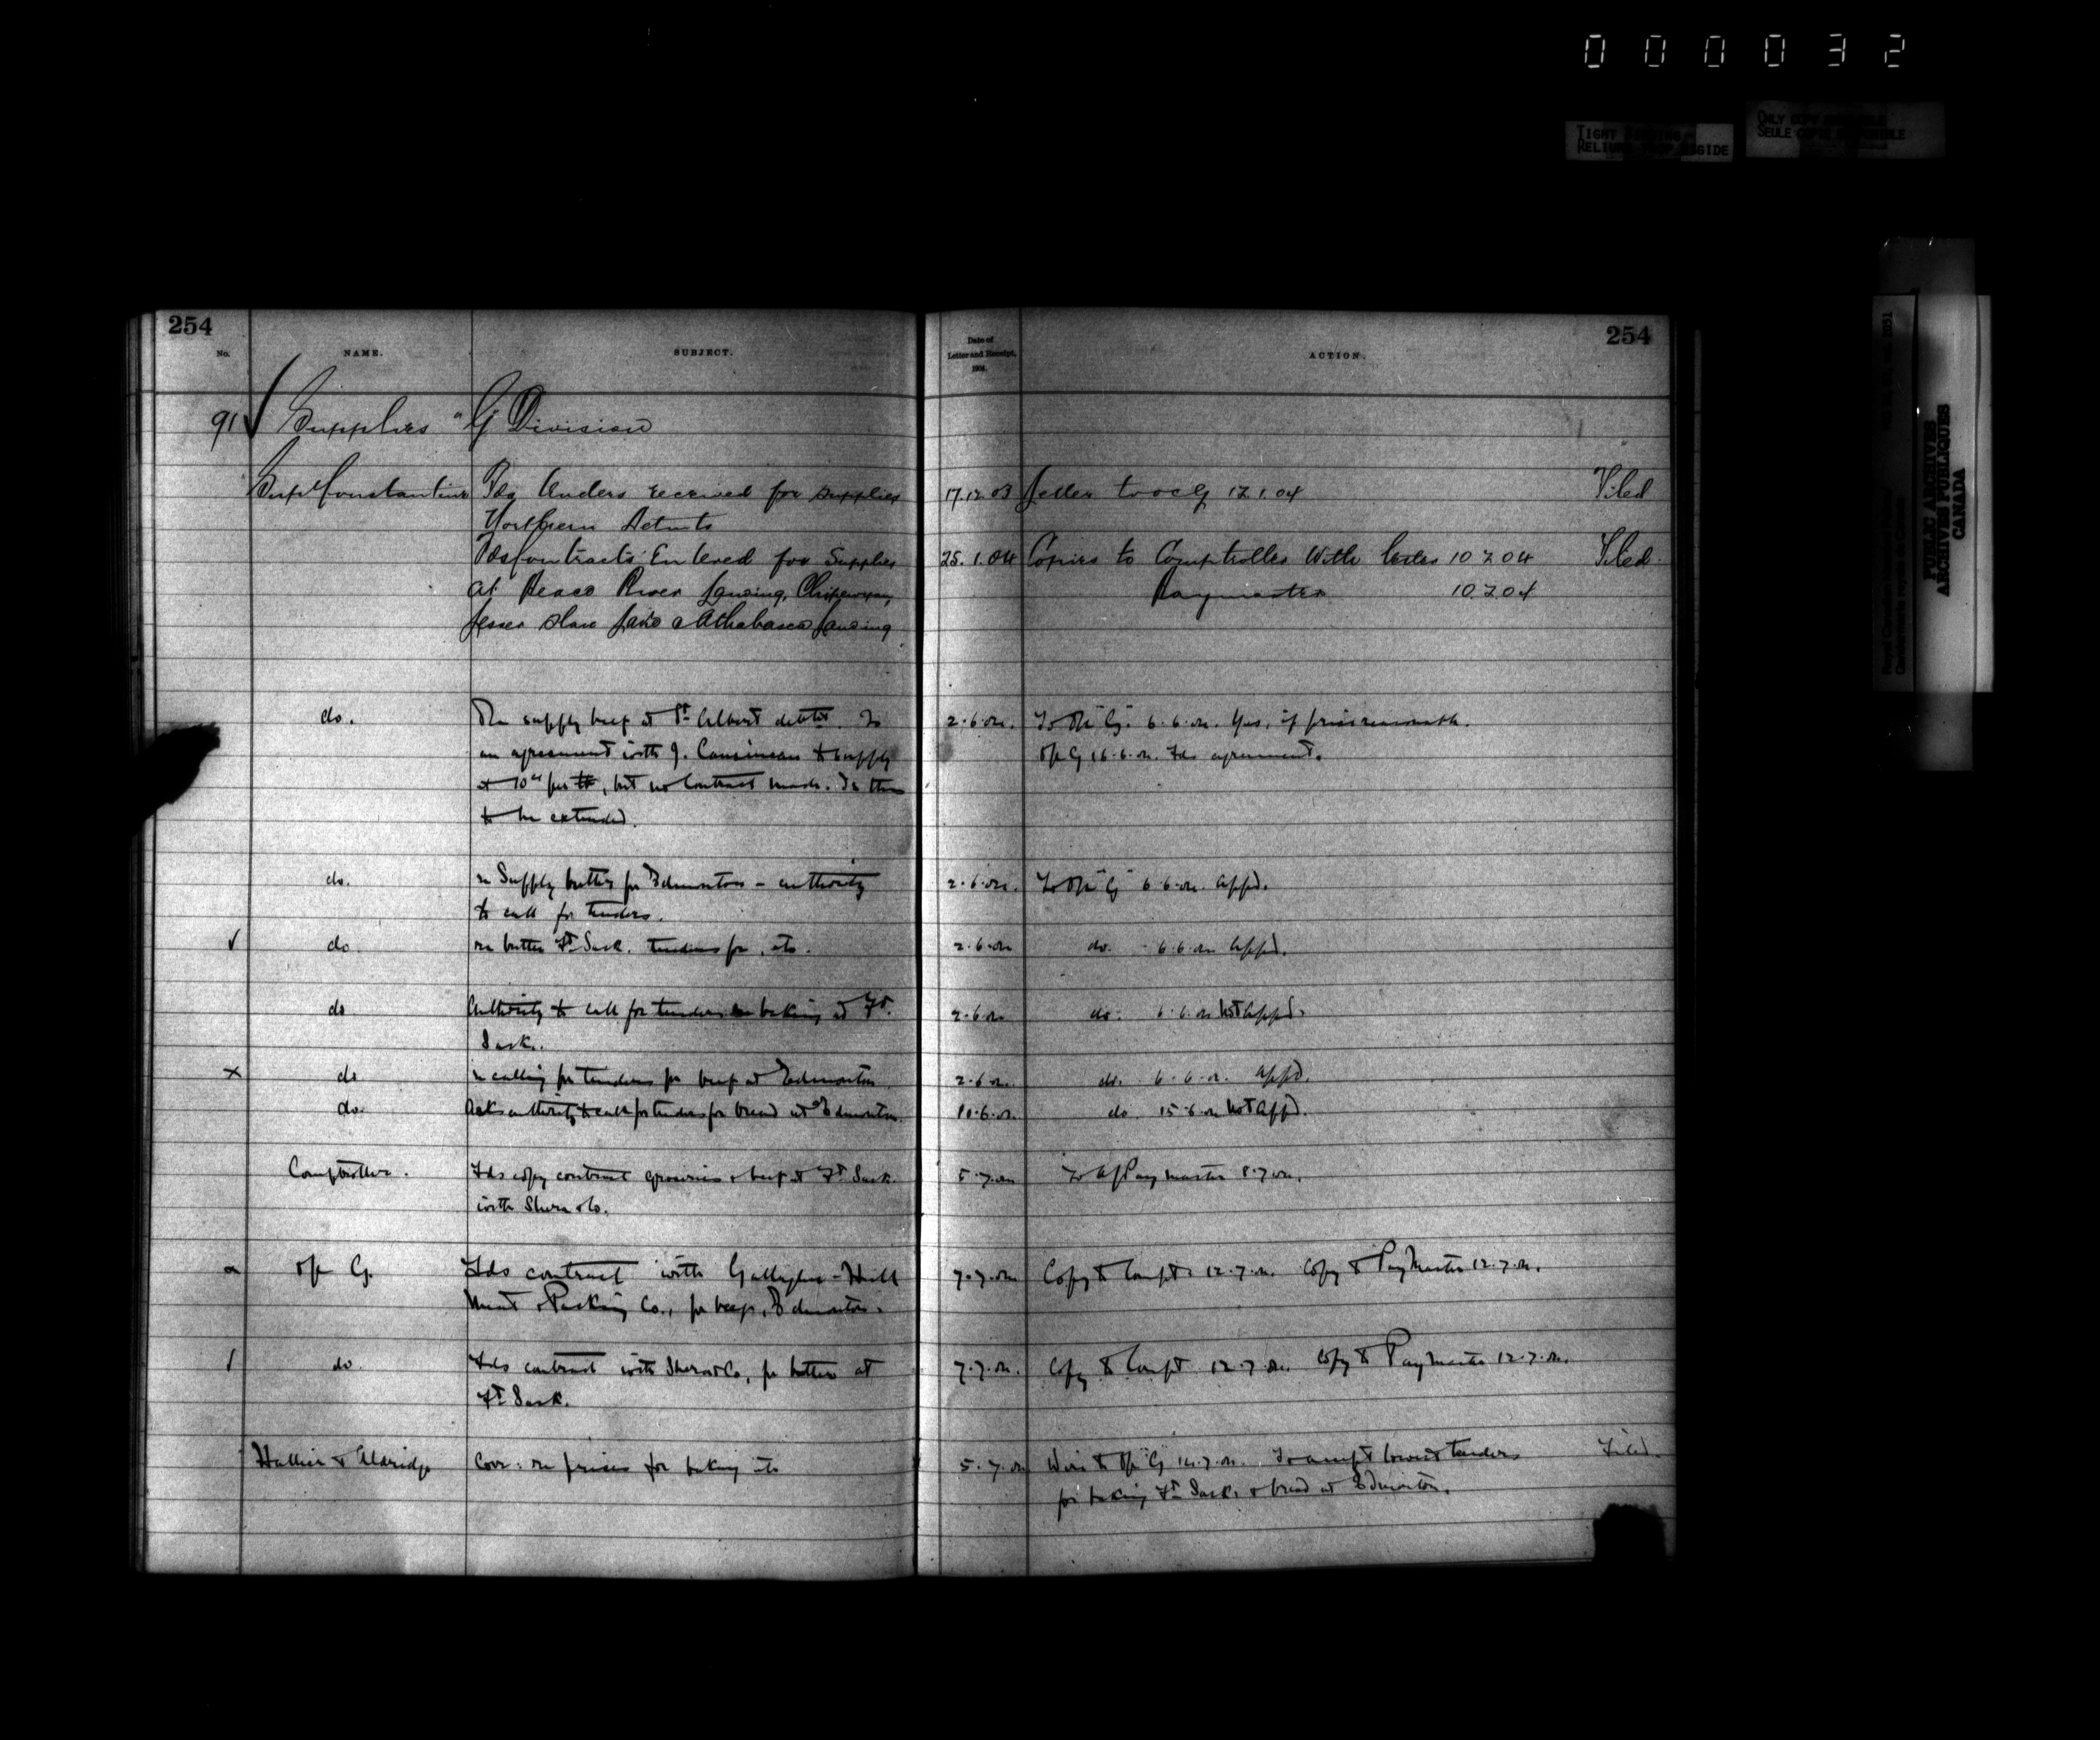 000032
TIGHT BINDING
RELIURE TROP RIGIDE
ONLY COPY AVAILABLE
SEULE COPIE DISPONIBLE
PUBLIC ARCHIVES
ARCHIVES PUBLIQUES
CANADA
254
254
No. NAME. SUBJECT. Date of Letter and Receipt, 190 . ACTION.
91 Supplies "G Division
Supt Constantine Fds tenders received for supplies 17.12.03 Letter to oc G 12.1.04 Filed
Northern
Fds Contracts Entered for Supplies 25.1.04 Copies to Comptroller with letter 10 2 04 Filed.
at Peace River Landing, Chipewyan, Paymaster 10.2.04
Lesser Slave Lake & Athabasca Landing
do. Re supply beef at Ft Albert detcht. 2.6.04. To Off "G". 6.6.04. Yes, if price reasonable.
an agreement with J. to supply Off G 16.6.04. Fds agreement.
at 10cts per lb, but no contract made. Is this
to be extended.
do. re Supply butter for Edmonton – authority 2.6.04. To Off "G" 6.6.04. appd.
to call for tenders.
do. re butter Ft Sask. tenders for, etc. 2.6.04 do. 6.6.04 appd.
do Authority to call for tenders baking at Ft. 2.6.04 do. 6.6.04 not appd.
Sask.
x do re calling for tenders for beef at Edmonton 2.6.04. do. 6.6.04. appd.
do. Asks authority to call for tenders for bread at Edmonton. 10.6.04. do. 15.6.04 not appd.
Comptroller. Fds copy contract groceries & beef at Ft Sask. 5.7.04 To A/Paymaster 8.7.04.
with Shera & Co.
Off G. Fds contract with Gallagher-Hull 7.7.04 Copy to Compt. 12.7.04. Copy to Paymaster 12.7.04.
Meat & Packing Co., for beef, Edmonton.
do. Fds contract with Shera & Co, for butter at 7.7.04. Copy to Compt 12.7.04. Copy to Paymaster 12.7.04.
Ft Sask.
Hallier & Aldridge Corr: re prices for baking etc 5.7.04 Wire to Off "G" 14.7.04. To accept lowest tenders Filed.
for baking Ft Sask. & bread at Edmonton.